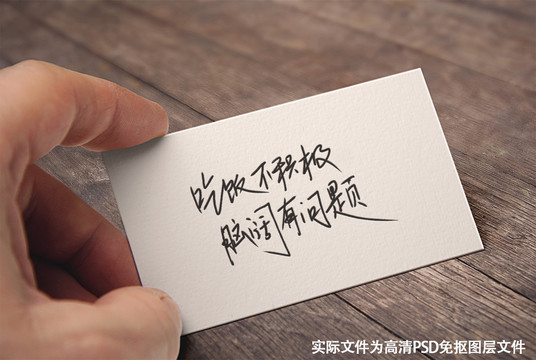 吃饭不积极
脑阔有问题
实际文件为高清PSD免抠图层文件